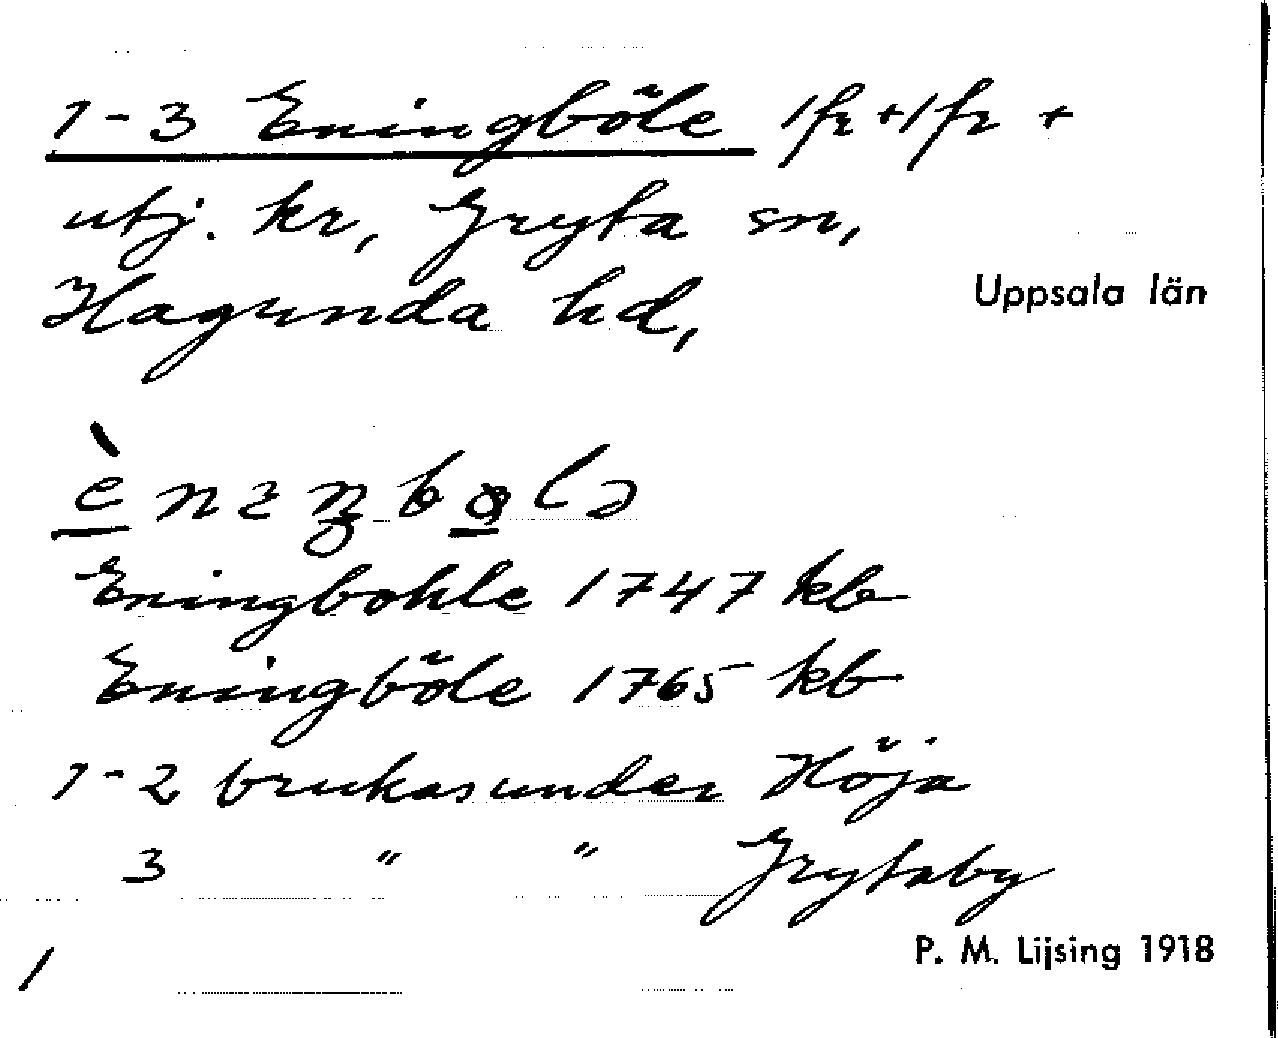 1-3 Eningböle 1 fr + 1 fr +
utj. kr, Gryta sn,
Hagunda hd,
Uppsala län
Eningbohle 1747 kb
Eningböle 1765 kb
1-2 brukas under Höja
3 " " Grytaby
P. M. Lijsing 1918
1